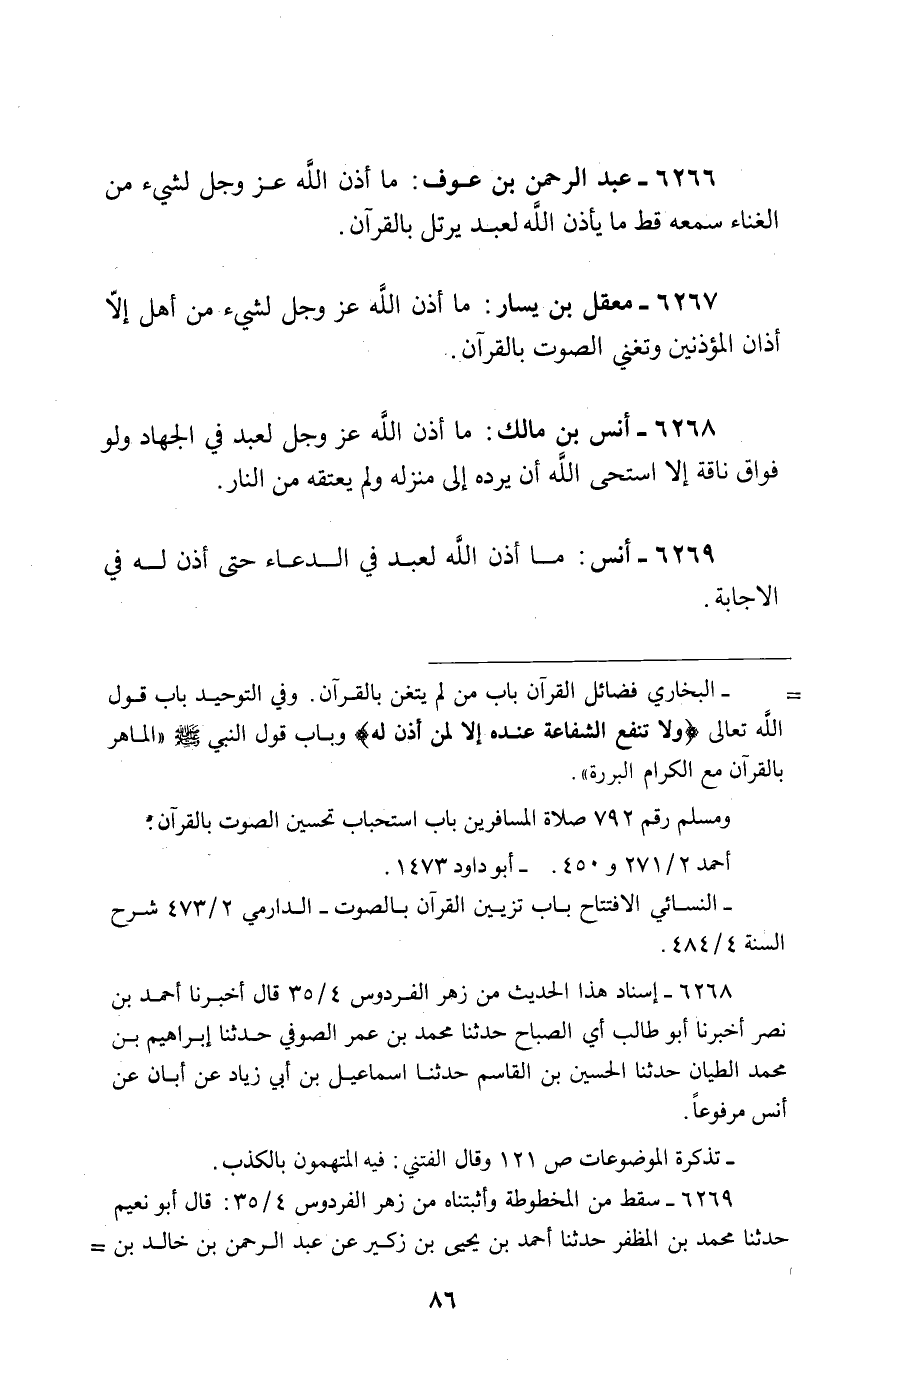 ٦٢٦٦ ـ عبد الرحمن بن عوف: ما أذن اللَّه عز وجل لشيء من
الغناء سمعه قط ما يأذن اللَّه لعبد يرتل بالقرآن.
٦٢٦٧ ـ معقل بن يسار: ما أذن اللَّه عز وجل لشيء من أهل إلاّ
أذان المؤذنين وتغني الصوت بالقرآن.
٦٢٦٨ ـ أنس بن مالك: ما أذن اللَّه عز وجل لعبد في الجهاد ولو
فواق ناقة إلا استحى اللَّه أن يرده إلى منزله ولم يعتقه من النار.
٦٢٦٩ ـ أنس: ما أذن اللَّه لعبد في الدعاء حتى أذن له في
الاجابة.
= ـ البخاري فضائل القرآن باب من لم يتغن بالقرآن. وفي التوحيد باب قول
اللَّه تعالى ﴿ولا تنفع الشفاعة عنده إلا لمن أذن له﴾ وباب قول النبي ﷺ «الماهر
بالقرآن مع الكرام البررة».
ومسلم رقم ٧٩٢ صلاة المسافرين باب استحباب تحسين الصوت بالقرآن؛
أحمد ٢/ ٢٧١ و ٤٥٠. ـ أبو داود ١٤٧٣.
ـ النسائي الافتتاح باب تزيين القرآن بالصوت ـ الدارمي ٢/ ٤٧٣ شرح
السنة ٤/ ٤٨٤.
٦٢٦٨ ـ إسناد هذا الحديث من زهر الفردوس ٤/ ٣٥ قال أخبرنا أحمد بن
نصر أخبرنا أبو طالب أي الصباح حدثنا محمد بن عمر الصوفي حدثنا إبراهيم بن
محمد الطيان حدثنا الحسين بن القاسم حدثنا اسماعيل بن أبي زياد عن أبان عن
أنس مرفوعاً.
ـ تذكرة الموضوعات ص ١٢١ وقال الفتني: فيه المتهمون بالكذب.
٦٢٦٩ ـ سقط من المخطوطة وأثبتناه من زهر الفردوس ٤/ ٣٥: قال أبو نعيم
حدثنا محمد بن المظفر حدثنا أحمد بن يحيى بن زكير عن عبد الرحمن بن خالد بن =
٨٦